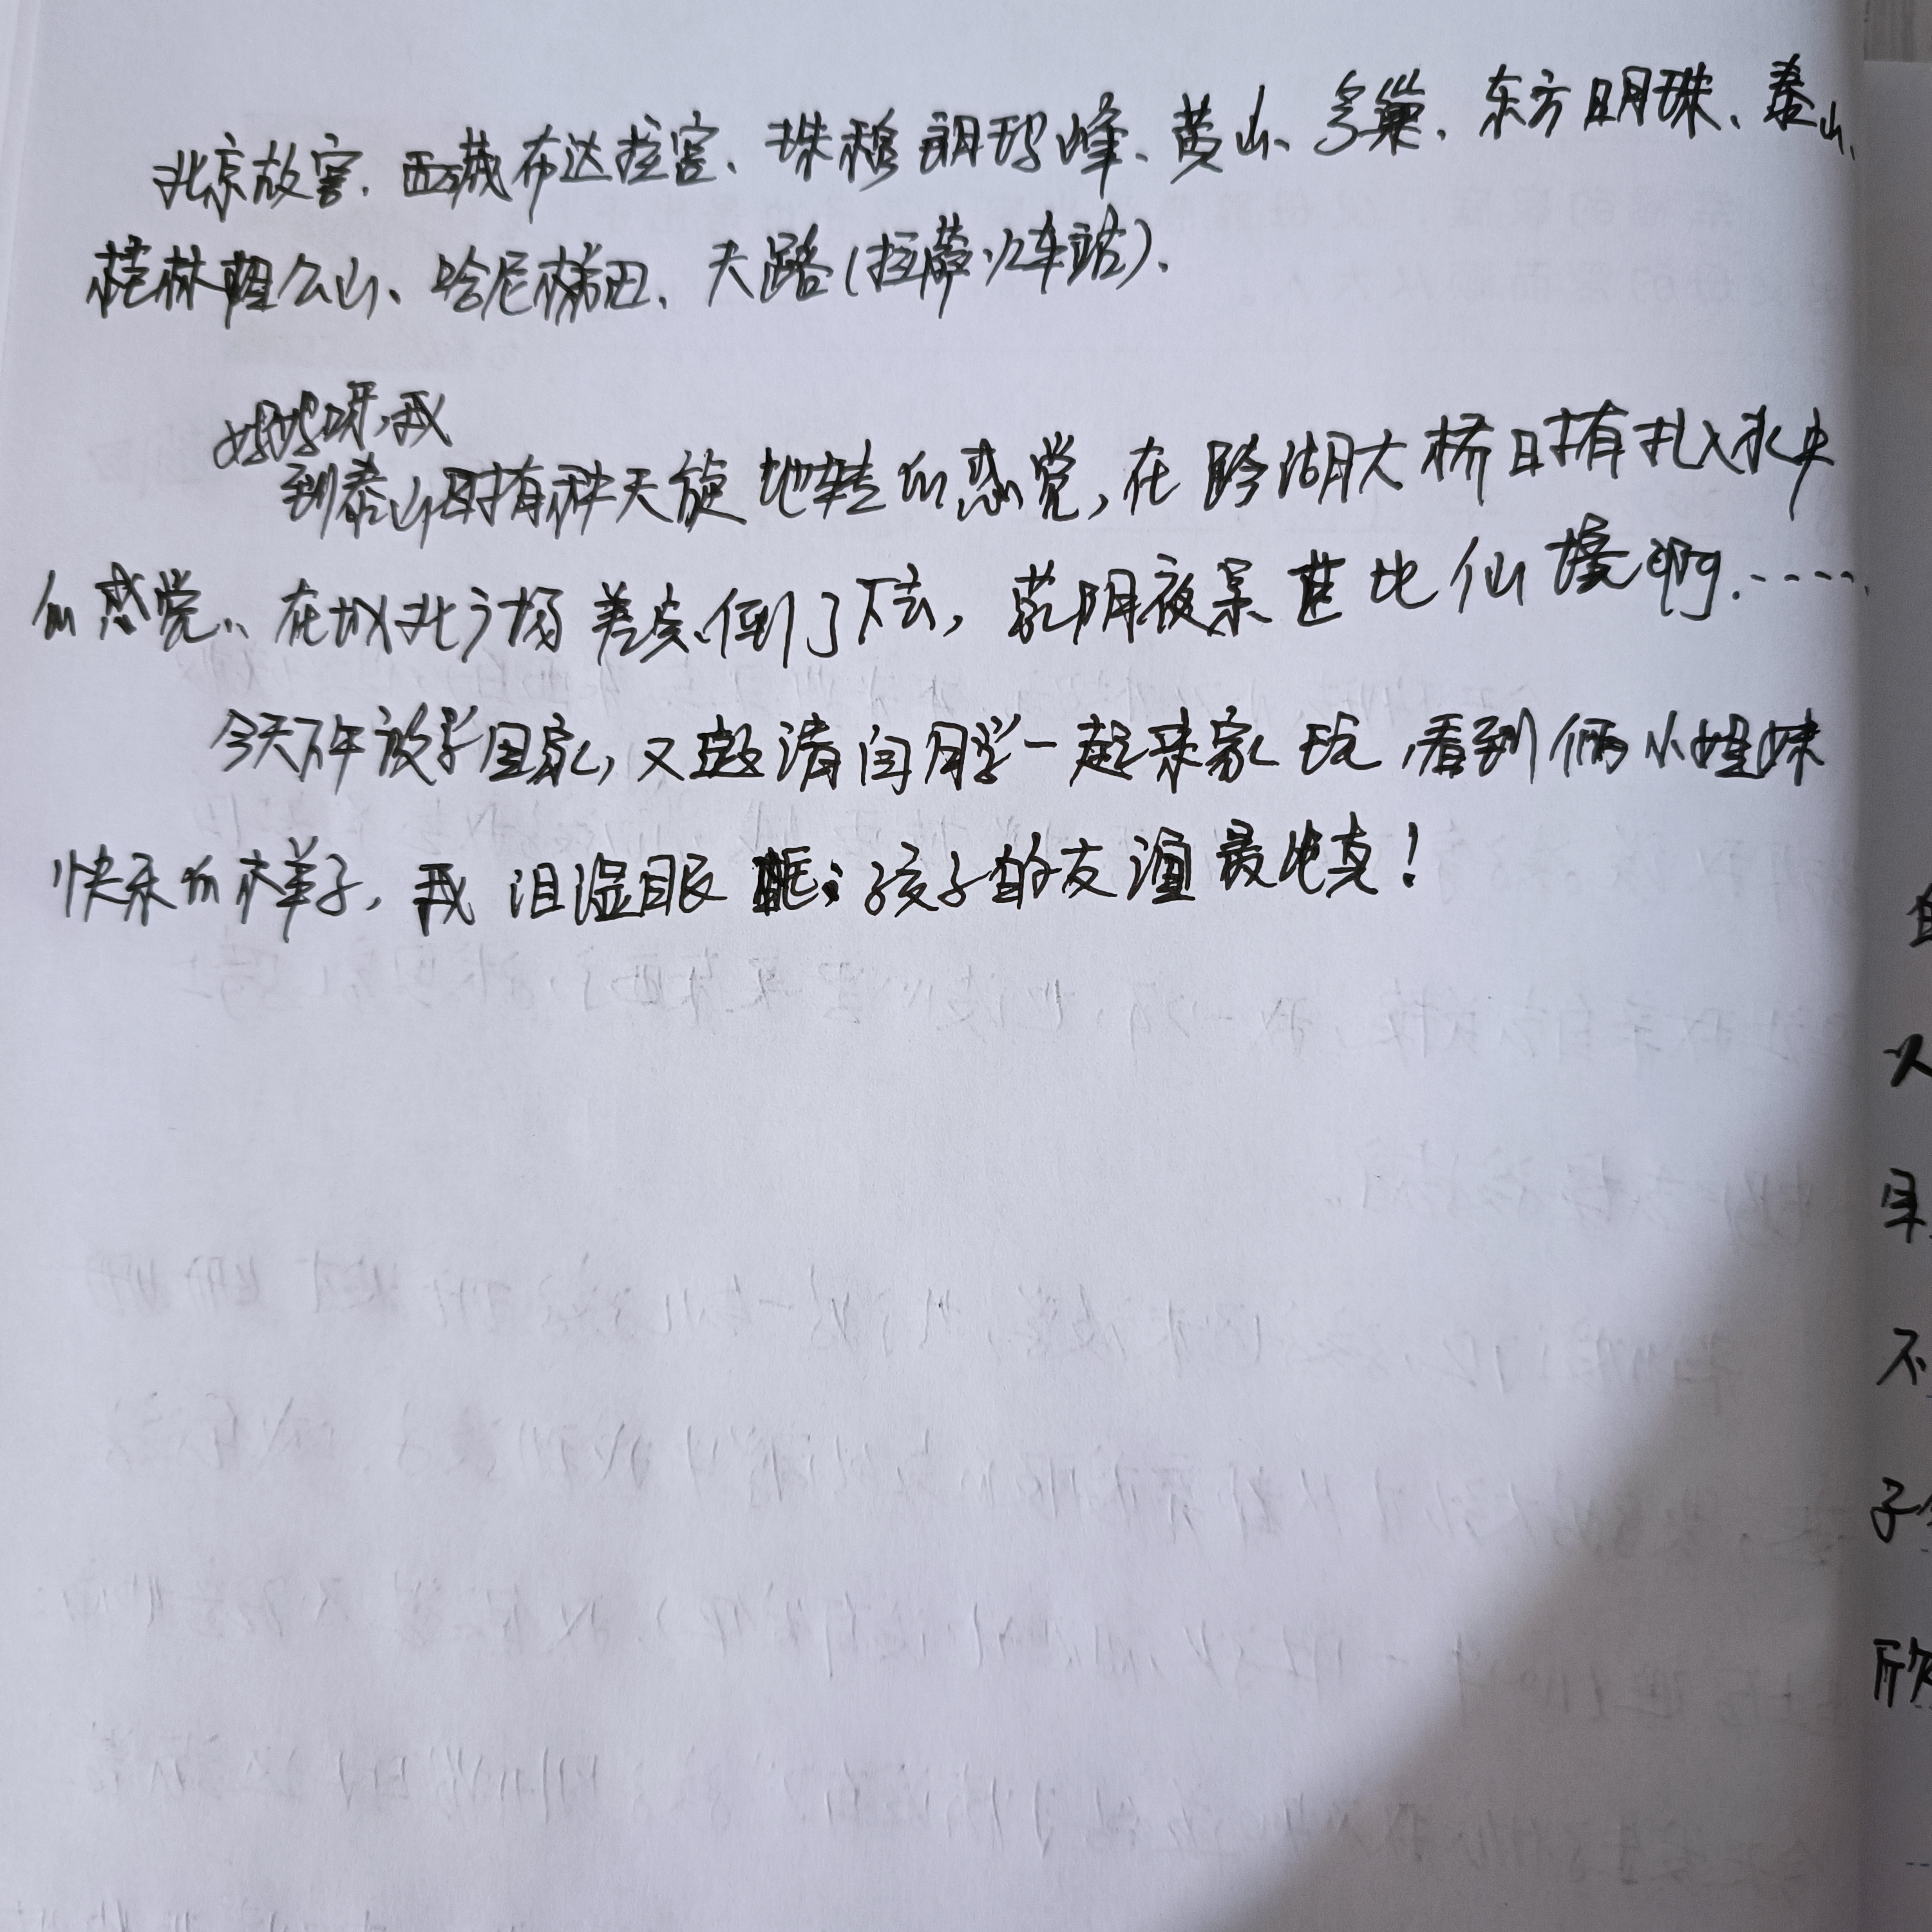 北京故宫、西藏布达拉宫、珠穆朗玛峰、黄山、鸟巢、东方明珠、泰山、
桂林阳公山、哈尼梯田、天路(拉萨火车站).
妈呀,我
到泰山时有种天旋地转的感觉,在跨湖大桥时有扎入水中
的感觉、在城北广场差点倒了下去,夜景堪比仙境啊……
今天下午放学回家,又邀请同学一起来家玩,看到俩小姐妹
快乐的样子,我泪湿眼眶:孩子的友谊最纯真!